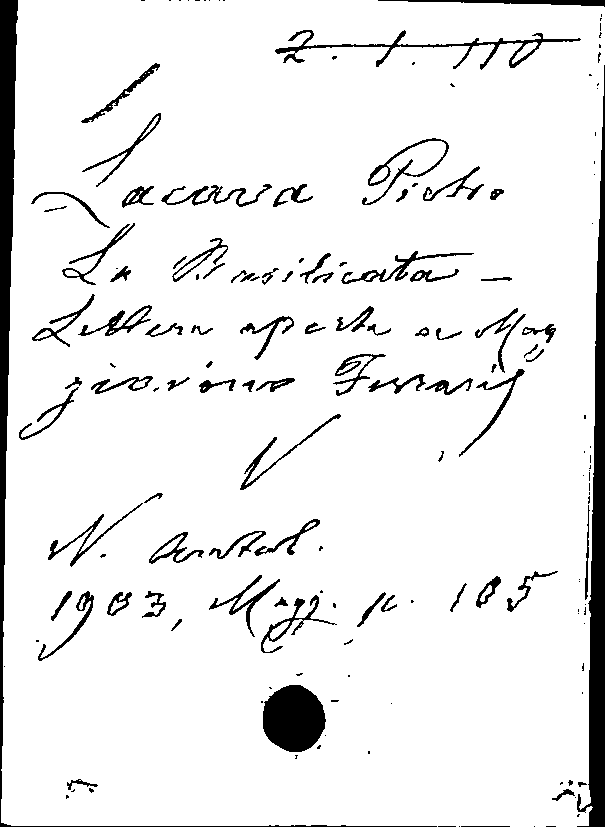 2. 1. 110
Lacava Pietro
La Basilicata -
Lettera aperta a Mag
giorino Ferraris
N. Antol.
1903, Magg. p. 105